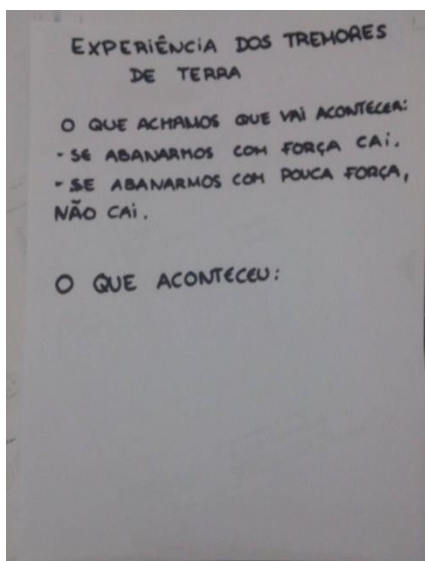 EXPERIÊNCIA DOS TREMORES
DE TERRA
O QUE ACHAMOS QUE VAI ACONTECER:
- SE ABANARMOS COM FORÇA CAI.
- SE ABANARMOS COM POUCA FORÇA,
NÃO CAI.
O QUE ACONTECEU: